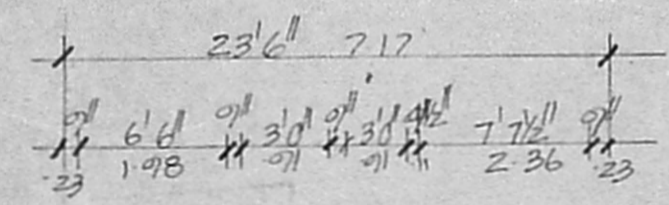 23'6" 7.17
9" 6'6" 9" 3'0" 9" 3'0" 4½" 7'7½" 9"
.23 1.98 .91 .91 .11 2.36 .23